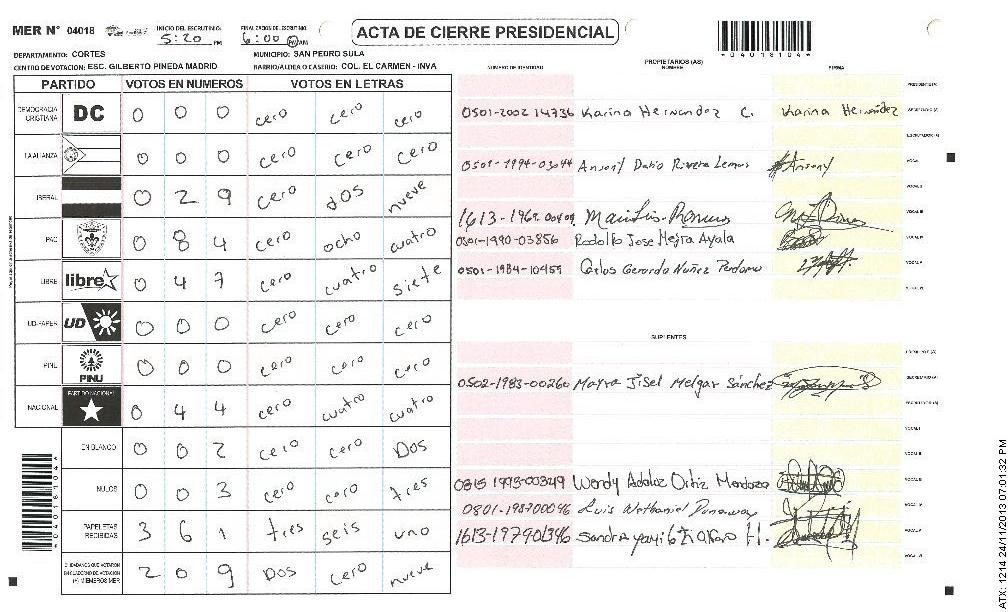 MER Nº 04018 INICIO DEL ESCRUTINIO: 5:20 PM FINALIZACION DEL ESCRUTINIO: 6:00 PM AM
ACTA DE CIERRE PRESIDENCIAL
*04018104*
DEPARTAMENTO: CORTES MUNICIPIO: SAN PEDRO SULA
CENTRO DE VOTACION: ESC. GILBERTO PINEDA MADRID BARRIO/ALDEA O CASERIO: COL. EL CARMEN - INVA
PARTIDO VOTOS EN NUMEROS VOTOS EN LETRAS
DEMOCRACIA CRISTIANA DC 0 0 0 cero cero cero
LA ALIANZA 0 0 0 cero cero cero
LIBERAL 0 2 9 cero dos nueve
PAC 0 8 4 cero ocho cuatro
LIBRE libre 0 4 7 cero cuatro siete
UD-FAPER UD 0 0 0 cero cero cero
PINU PINU 0 0 0 cero cero cero
NACIONAL PARTIDO NACIONAL 0 4 4 cero cuatro cuatro
EN BLANCO 0 0 2 cero cero Dos
NULOS 0 0 3 cero cero tres
PAPELETAS RECIBIDAS 3 6 1 tres seis uno
CIUDADANOS QUE VOTARON EN CUADERNO DE VOTACION (+) MIEMBROS MER 2 0 9 Dos cero nueve
*04018104*
PROPIETARIOS (AS)
NUMERO DE IDENTIDAD NOMBRE FIRMA
PRESIDENTE (A)
0501-2002 14736 Karina Hernandez C. Karina Hernández SECRETARIO (A)
ESCRUTADOR (A)
0501-1994-03044 Ansony Dario Rivera Lemus Ansony VOCAL I
VOCAL II
1613-1969- VOCAL III
0501-1990-03856 Rodolfo Jose Mejra Ayala VOCAL IV
0501-1984-10459 Carlos Gerardo Nuñez Perdomo VOCAL V
VOCAL VI
SUPLENTES
PRESIDENTE (A)
0502-1983-00260 Mayra Jisel Melgar Sánchez SECRETARIO (A)
ESCRUTADOR (A)
VOCAL I
VOCAL II
0815 1993-00349 Wendy Adaluz Ortiz Mendoza VOCAL III
0801-198700096 Luis Nathaniel VOCAL IV
1613-197901396 Sandra H. VOCAL V
VOCAL VI
ATX: 1214 24/11/2013 07:01:32 PM